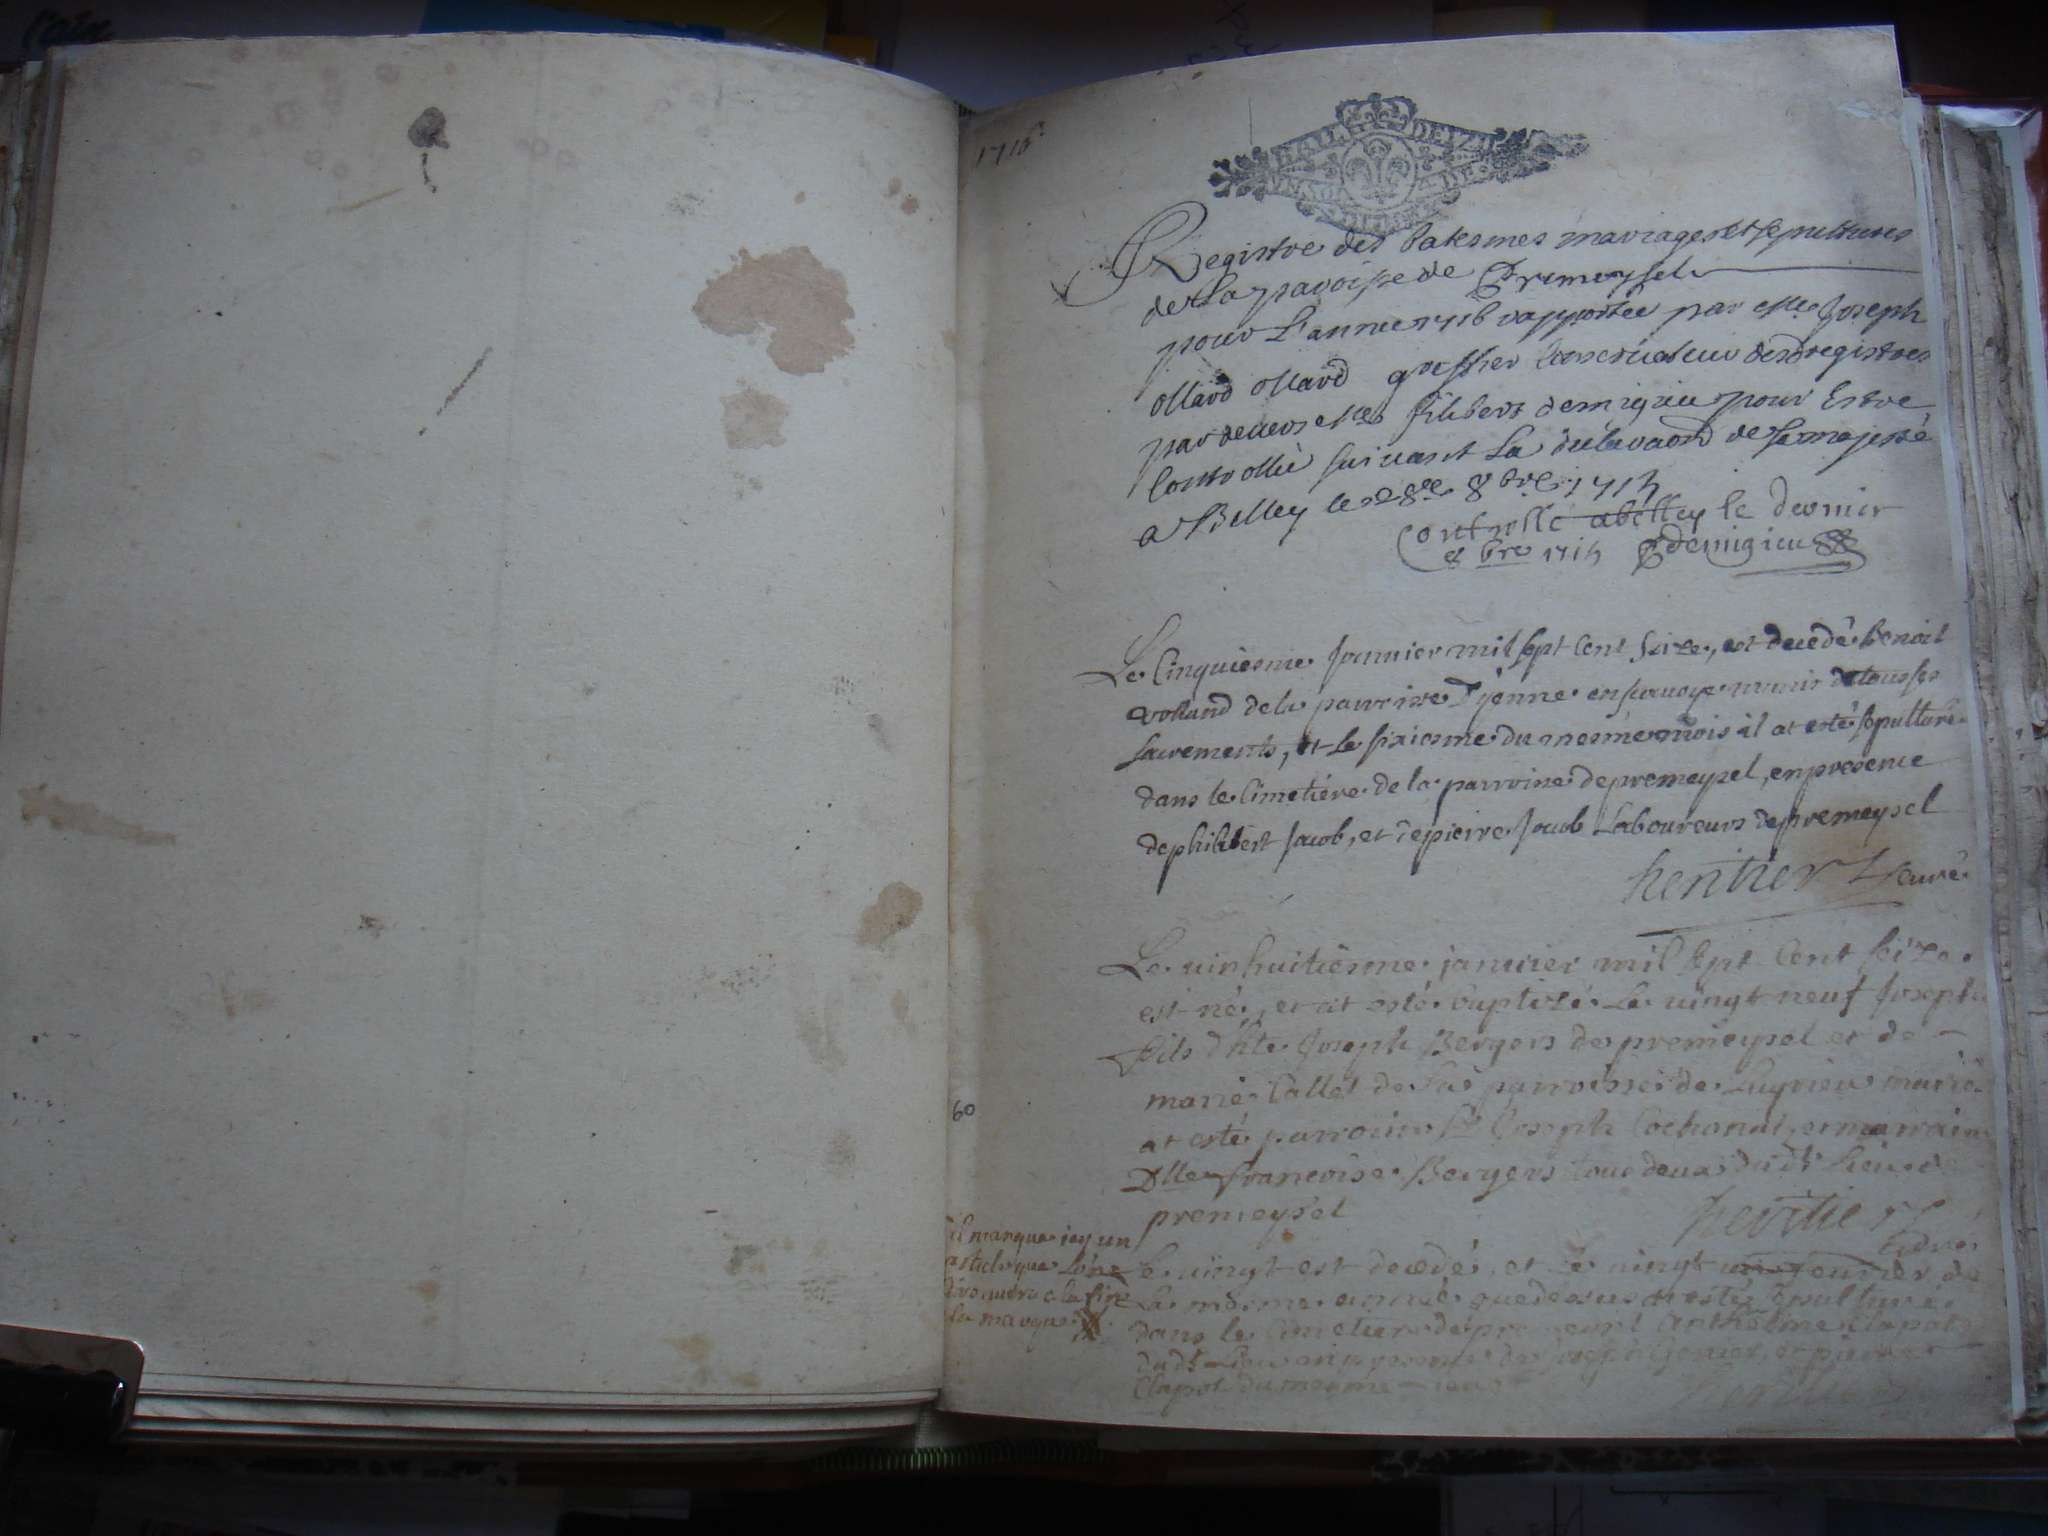 1716
Registre des batesmes mariages et sepultures
de La paroisse de Premeysel
pour L'annee 1716 rapportée par Me Joseph
ollard ollard greffier Conservateur desd registres
par devers Me filibert demigieu pour Estre
Controllé suivant La de sa majesté
a Belley le 8bre 1715
Controllé a belley le dernier
8bre 1715 demigieu
Le Cinquiesme Janvier mil sept Cent seize, est decedé benoit
volland de la parroisse D'yenne en savoye munis de tous ses
sacrements, et Le sixiesme du mesme mois il at esté sepulturé
dans le Cimetiére de la parroisse de premeysel, en presence
de philibert Jacob, et de pierre Jacob Laboureurs de premeysel
heritier curé
Le vinhuitiesme janvier mil sept Cent seize
est né, et at esté baptizé Le vingt neuf Joseph
fils d'hte Joseph Bergers de premeysel et de
marie Callet de la parroisse de Lagnieu mariés
at esté parroin Sr Joseph Cochonat, et marraine
Dlle francoise Bergers tous deux dudt Lieu de
premeysel
heritier
Curé
60
il manque icy un
article que L'on
trouvera a la fin
a la marque
Le vingt est decedé, et Le vingt un fevrier de
La mesme année que dessus at esté sepulturé
dans le Cimetiere de premeysel anthelme Clapot
dudt Lieu en presence de Joseph et pierre
Clapot du mesme Lieu
heritier